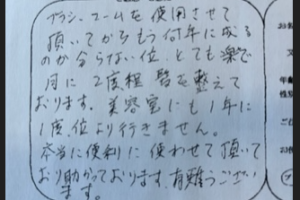 ブラシ、コームを使用させて
頂いてからもう何年に成る
のか分らない位、とても楽で
月に2度程髪を整えて
おります。美容室にも1年に
1度位より行きません。
本当に便利に使わせて頂いて
おり助かっております。有難うござい
ます。